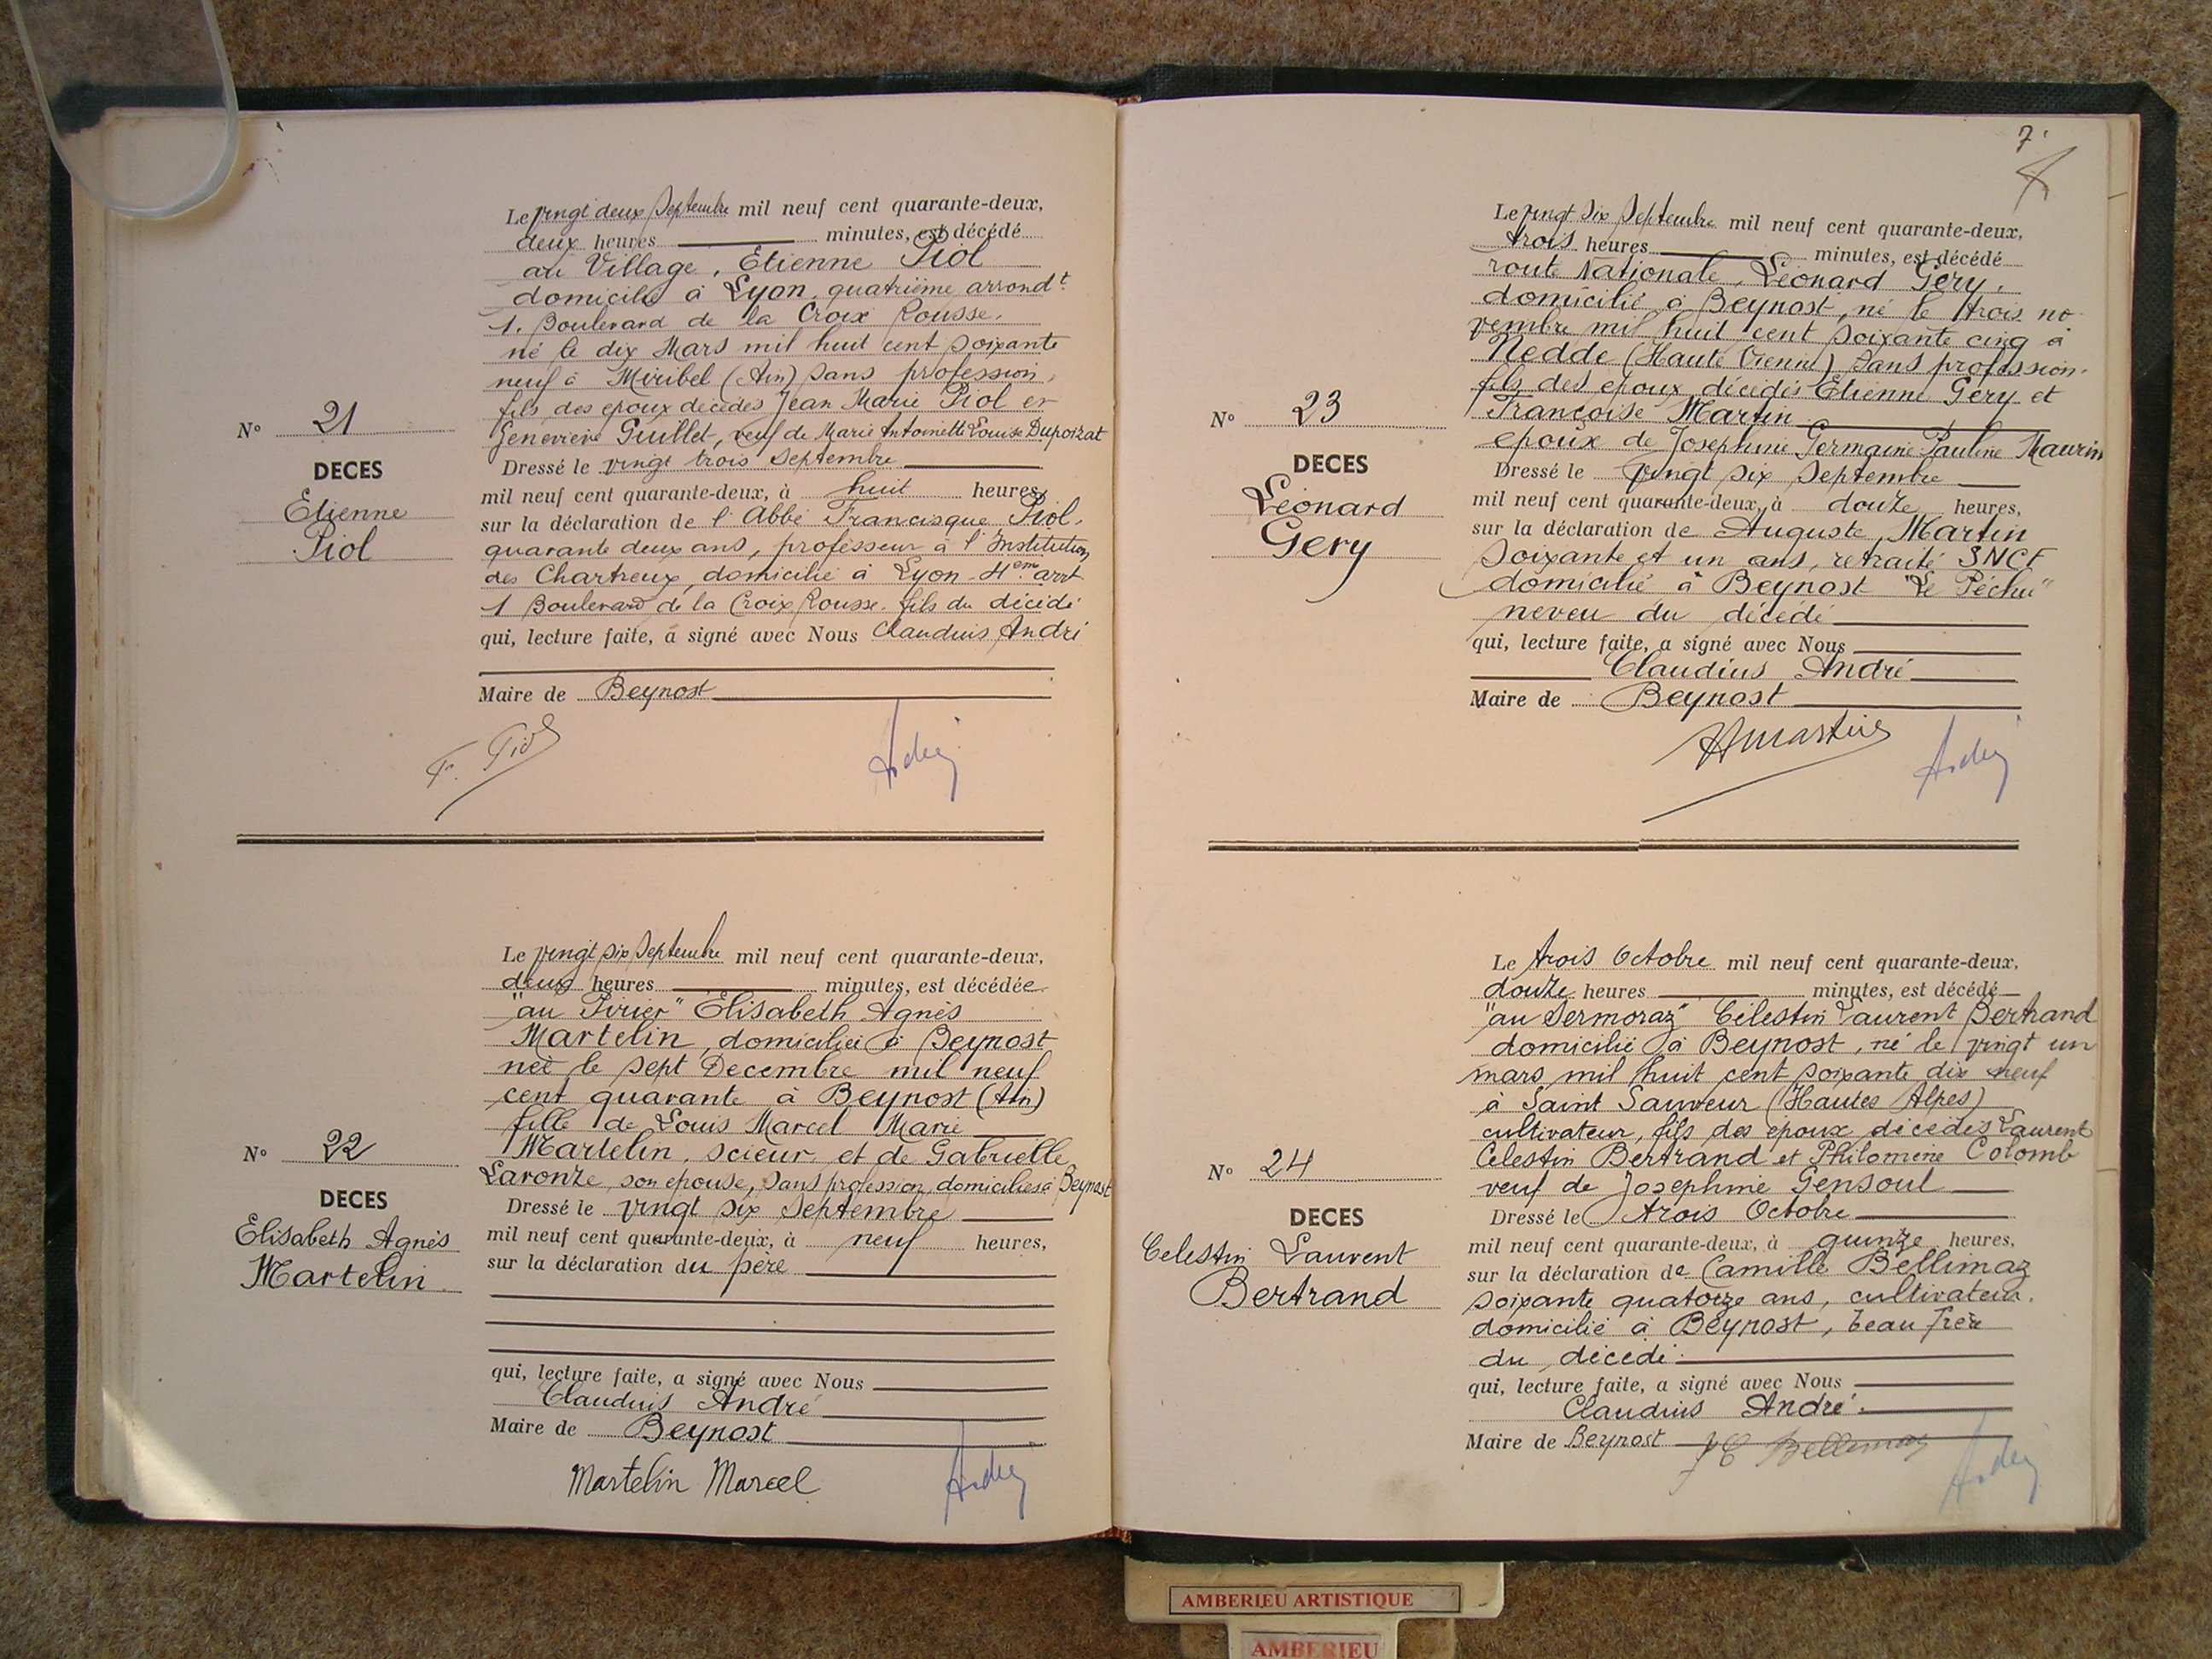 Le vingt deux Septembre mil neuf cent quarante-deux,
deux heures minutes, est décédé
au Village, Etienne Piol
domicilié à Lyon, quatrième arrondt
1. Boulevard de la Croix Rousse,
né le dix Mars mil huit cent soixante
neuf à Miribel (Ain) sans profession,
fils des époux décédés Jean Marie Piol et
Geneviève Guillet, veuf de Marie Antoinette Louise Dupoizat
N° 21
DECES
Etienne
Piol
Dressé le vingt trois Septembre
mil neuf cent quarante-deux, à huit heures,
sur la déclaration de l'Abbé Francisque Piol,
quarante deux ans, professeur à l'Institution
des Chartreux, domicilié à Lyon 4em arrt
1 Boulevard de la Croix Rousse, fils du décédé
qui, lecture faite, a signé avec Nous Claudius André
Maire de Beynost
F. Piol
André
Le vingt six Septembre mil neuf cent quarante-deux,
deux heures minutes, est décédée
Elisabeth Agnès
Martelin, domiciliée à Beynost
née le sept Decembre mil neuf
cent quarante à Beynost (Ain)
fille de Louis Marcel Marie
Martelin, scieur et de Gabrielle
Laronze, son épouse, sans profession, domiciliés à Beynost
N° 22
DECES
Elisabeth Agnès
Martelin
Dressé le vingt six Septembre
mil neuf cent quarante-deux, à neuf heures,
sur la déclaration du père
qui, lecture faite, a signé avec Nous
Claudius André
Maire de Beynost
Martelin Marcel
André
7
Le vingt six Septembre mil neuf cent quarante-deux,
trois heures minutes, est décédé
route Nationale, Léonard Gery,
domicilié à Beynost, né le trois no
vembre mil huit cent soixante cinq à
Nedde (Haute Vienne) sans profession.
fils des époux décédés Etienne Gery et
Françoise Martin
époux de Josephine Germaine Pauline Maurin
N° 23
DECES
Léonard
Gery
Dressé le vingt six Septembre
mil neuf cent quarante-deux, à douze heures,
sur la déclaration de Auguste Martin
soixante et un ans, retraité SNCF
domicilié à Beynost "Le Péchu"
neveu du décédé
qui, lecture faite, a signé avec Nous
Claudius André
Maire de Beynost
AMartin
André
Le trois Octobre mil neuf cent quarante-deux,
douze heures minutes, est décédé
"au Sermoraz" Célestin Laurent Bertrand
domicilié à Beynost, né le vingt un
mars mil huit cent soixante dix neuf
à Saint Sauveur (Hautes Alpes)
cultivateur, fils des époux décédés Laurent
Célestin Bertrand et Philomène Colomb
veuf de Josephine Gensoul
N° 24
DECES
Celestin Laurent
Bertrand
Dressé le trois Octobre
mil neuf cent quarante-deux, à quinze heures,
sur la déclaration de Camille Bellimaz
soixante quatorze ans, cultivateur,
domicilié à Beynost, beau frère
du décédé
qui, lecture faite, a signé avec Nous
Claudius André
Maire de Beynost
Bellimaz
André
AMBERIEU ARTISTIQUE
AMBERIEU